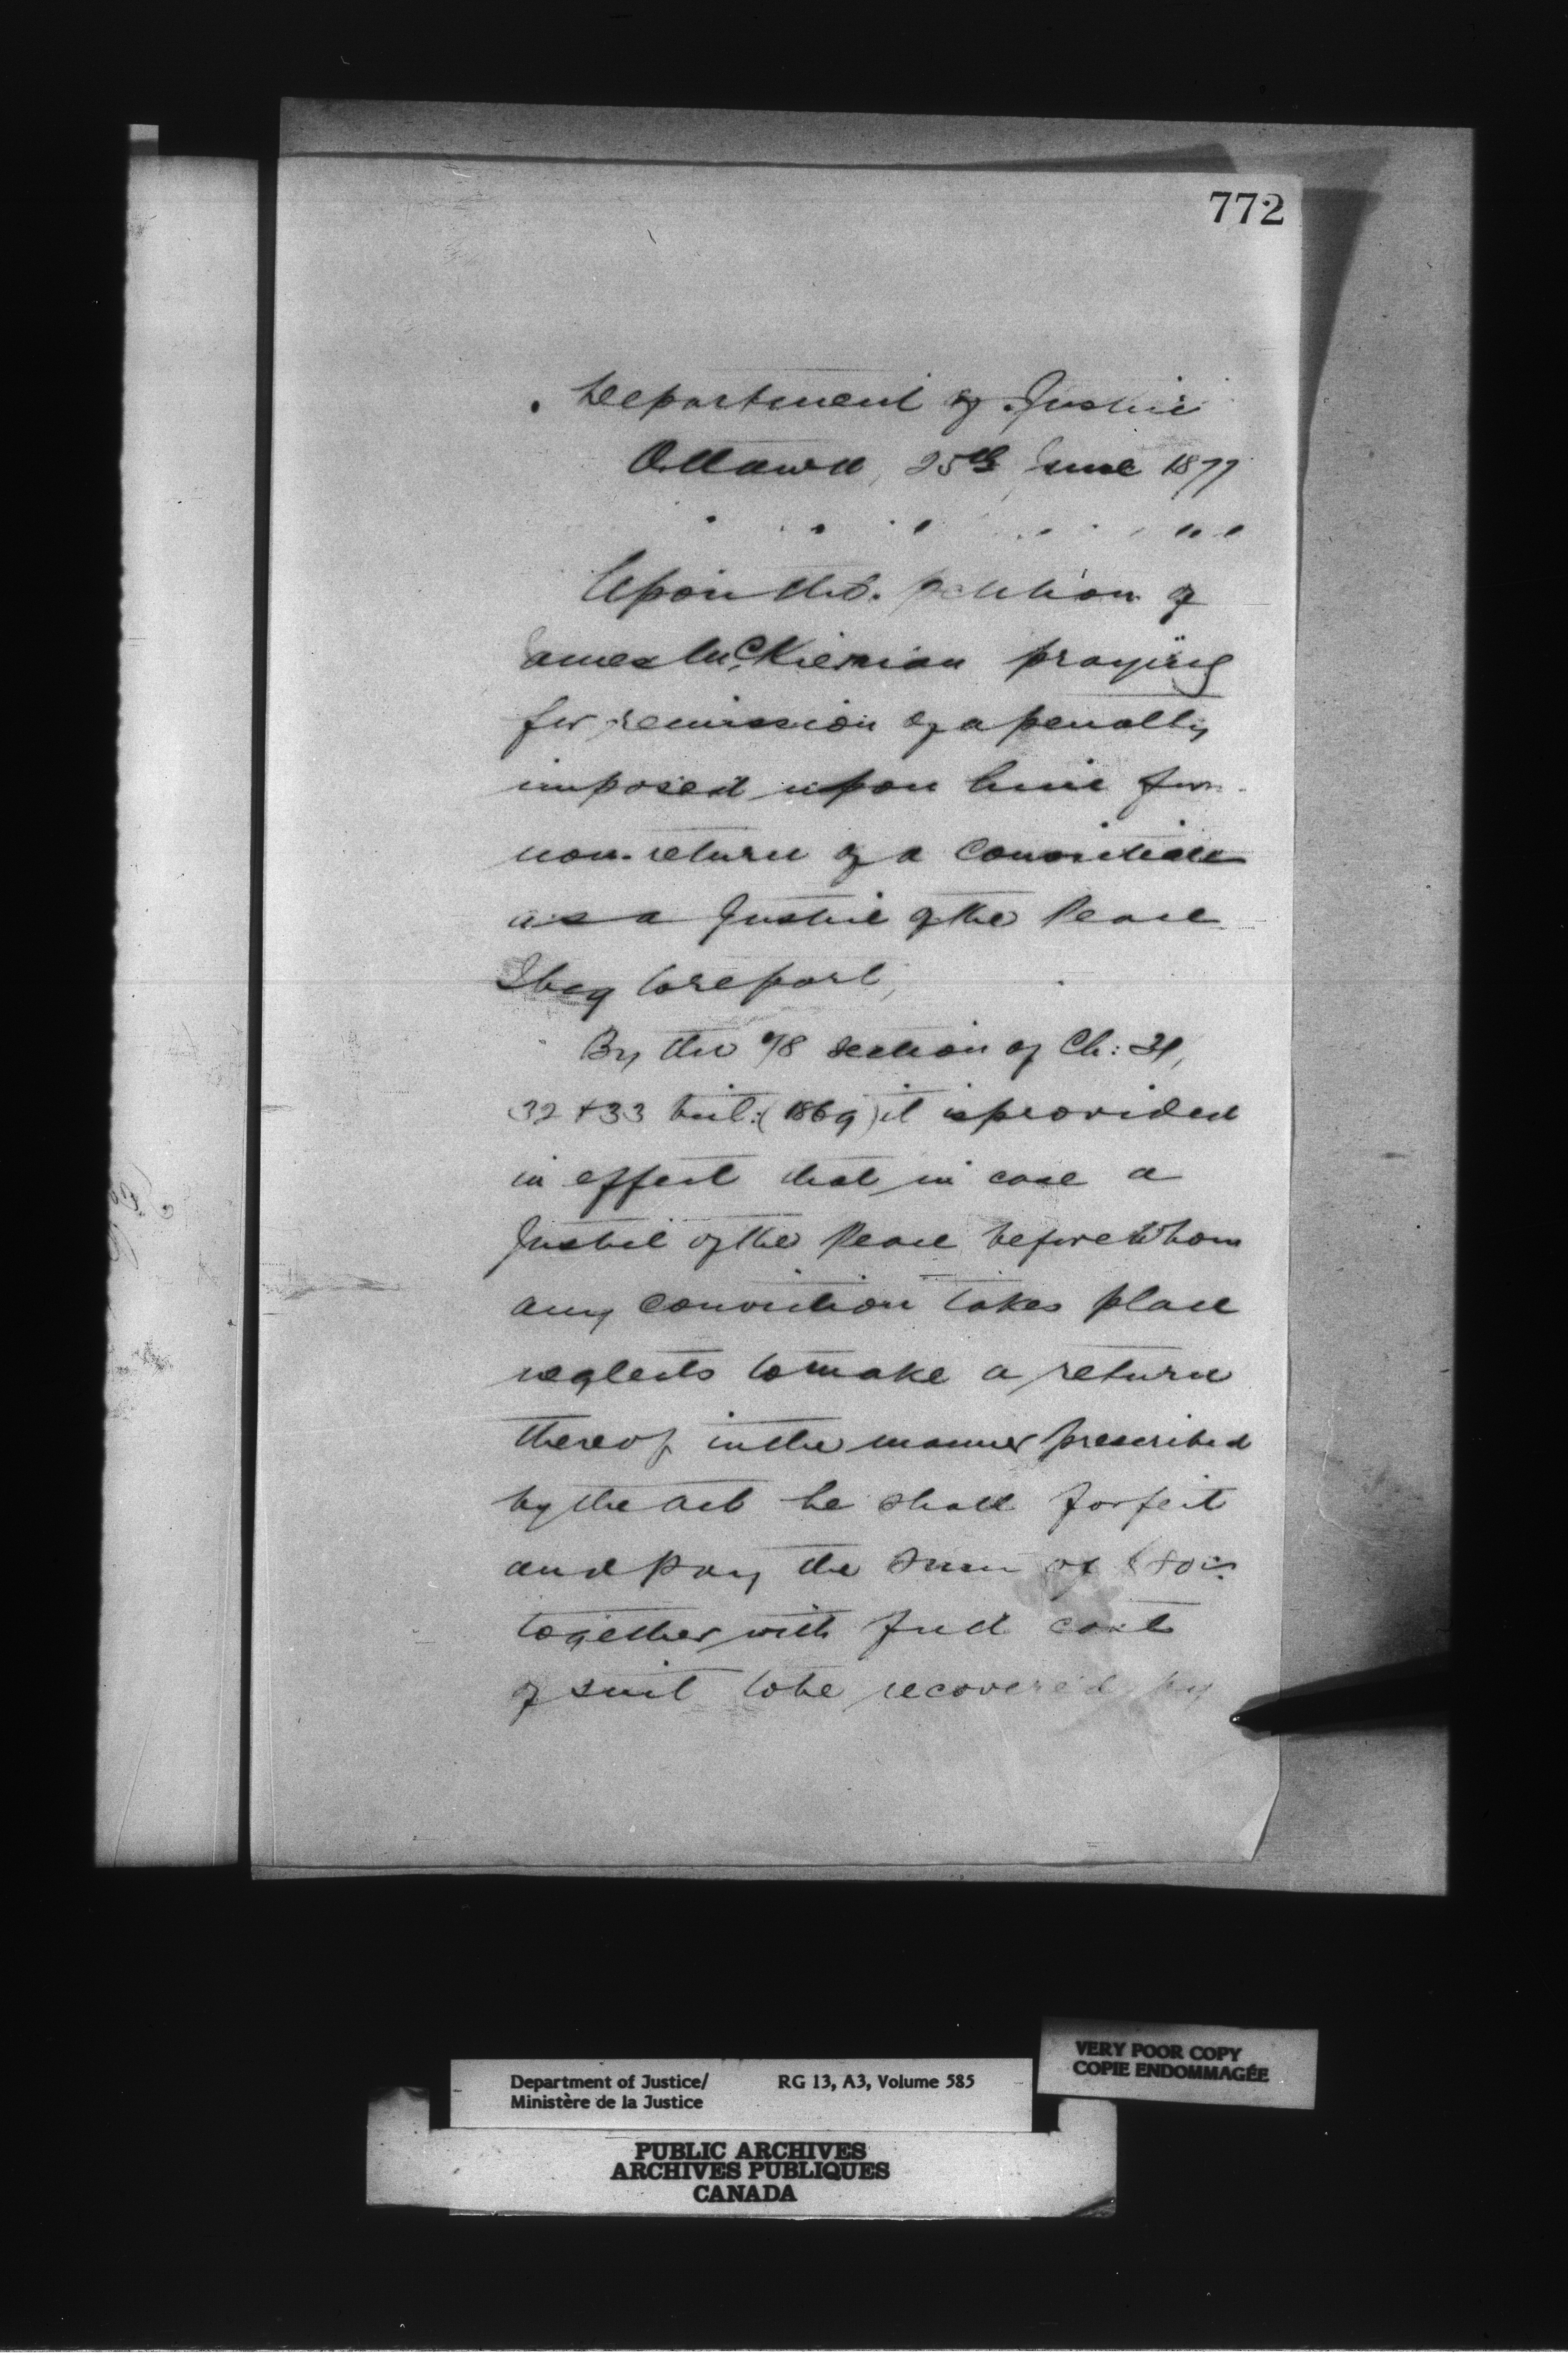 772
Department of Justice
Ottawa, 25th June 1877
Upon the petition of
James McKiernan praying
for remission of a penalty
imposed upon him for
non-return of a conviction
as a Justice of the Peace
I beg to report,
By the 78 section of Ch: 31,
32 & 33 Vict: (1869) it is provided
in effect that in case a
Justice of the Peace before whom
any conviction takes place
neglects to make a return
thereof in the manner prescribed
by the act he shall forfeit
and pay the sum of
together with full cost
of suit to be recovered by
VERY POOR COPY
COPIE ENDOMMAGÉE
Department of Justice/ RG 13, A3, Volume 585
Ministère de la Justice
PUBLIC ARCHIVES
ARCHIVES PUBLIQUES
CANADA